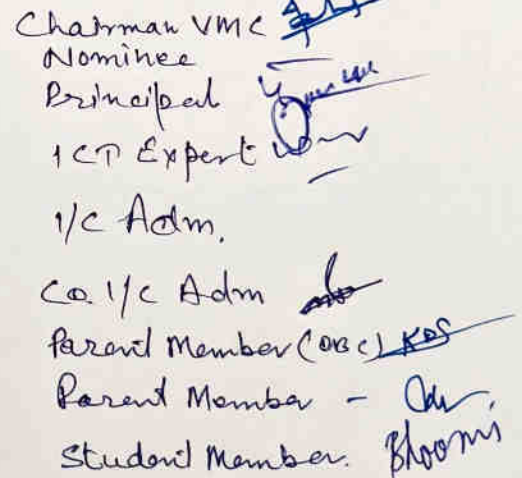 Chairman VMC
Nominee
Principal
ICT Expert
I/C Adm.
Co. I/C Adm
Parent Member (OBC) KDS
Parent Member -
Student Member. Bhoomi